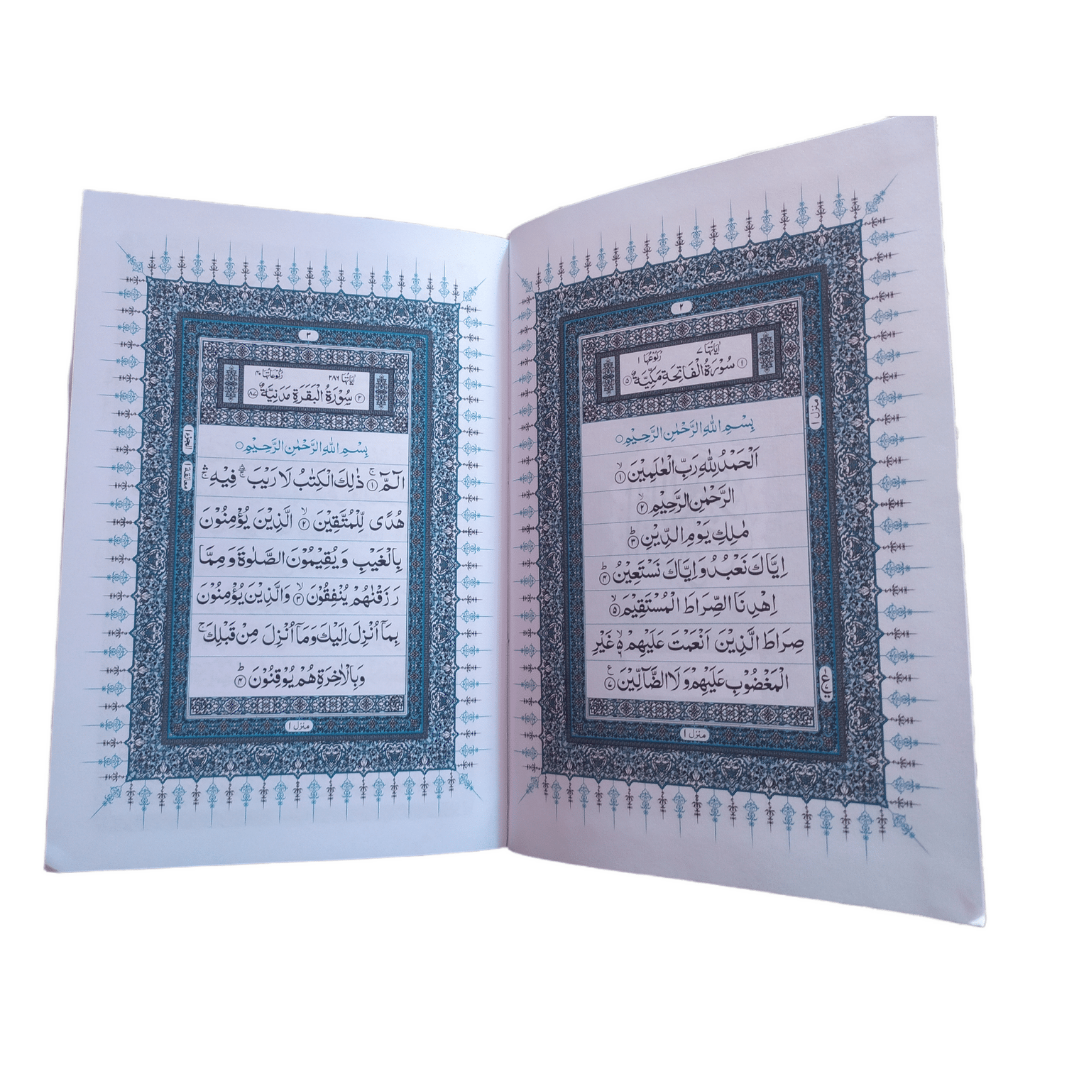 ٢
اٰيَاتُهَا ٧ رُكُوْعُهَا ١
سُوْرَةُ الْفَاتِحَةِ مَكِّيَّةٌ
بِسْمِ اللّٰهِ الرَّحْمٰنِ الرَّحِيْمِ
اَلْحَمْدُ لِلّٰهِ رَبِّ الْعٰلَمِيْنَ ۙ ١
الرَّحْمٰنِ الرَّحِيْمِ ۙ ٢
مٰلِكِ يَوْمِ الدِّيْنِ ؕ ٣
اِيَّاكَ نَعْبُدُ وَ اِيَّاكَ نَسْتَعِيْنُ ؕ ٤
اِهْدِنَا الصِّرَاطَ الْمُسْتَقِيْمَ ۙ ٥
صِرَاطَ الَّذِيْنَ اَنْعَمْتَ عَلَيْهِمْ ۙ ٦ غَيْرِ
الْمَغْضُوْبِ عَلَيْهِمْ وَلَا الضَّآلِّيْنَ ٧
منزل ١
منزل ١
٣
اٰيَاتُهَا ٢٨٦ رُكُوْعَاتُهَا ٤٠
٢ سُوْرَةُ الْبَقَرَةِ مَدَنِيَّةٌ ٨٧
بِسْمِ اللّٰهِ الرَّحْمٰنِ الرَّحِيْمِ
الٓمّٓ ۚ ١ ذٰلِكَ الْكِتٰبُ لَا رَيْبَ ۛ فِيْهِ ۛ
هُدًى لِّلْمُتَّقِيْنَ ۙ ٢ الَّذِيْنَ يُؤْمِنُوْنَ
بِالْغَيْبِ وَ يُقِيْمُوْنَ الصَّلٰوةَ وَ مِمَّا
رَزَقْنٰهُمْ يُنْفِقُوْنَ ۙ ٣ وَالَّذِيْنَ يُؤْمِنُوْنَ
بِمَاۤ اُنْزِلَ اِلَيْكَ وَمَاۤ اُنْزِلَ مِنْ قَبْلِكَ ۚ
وَبِالْاٰخِرَةِ هُمْ يُوْقِنُوْنَ ؕ ٤
منزل ١